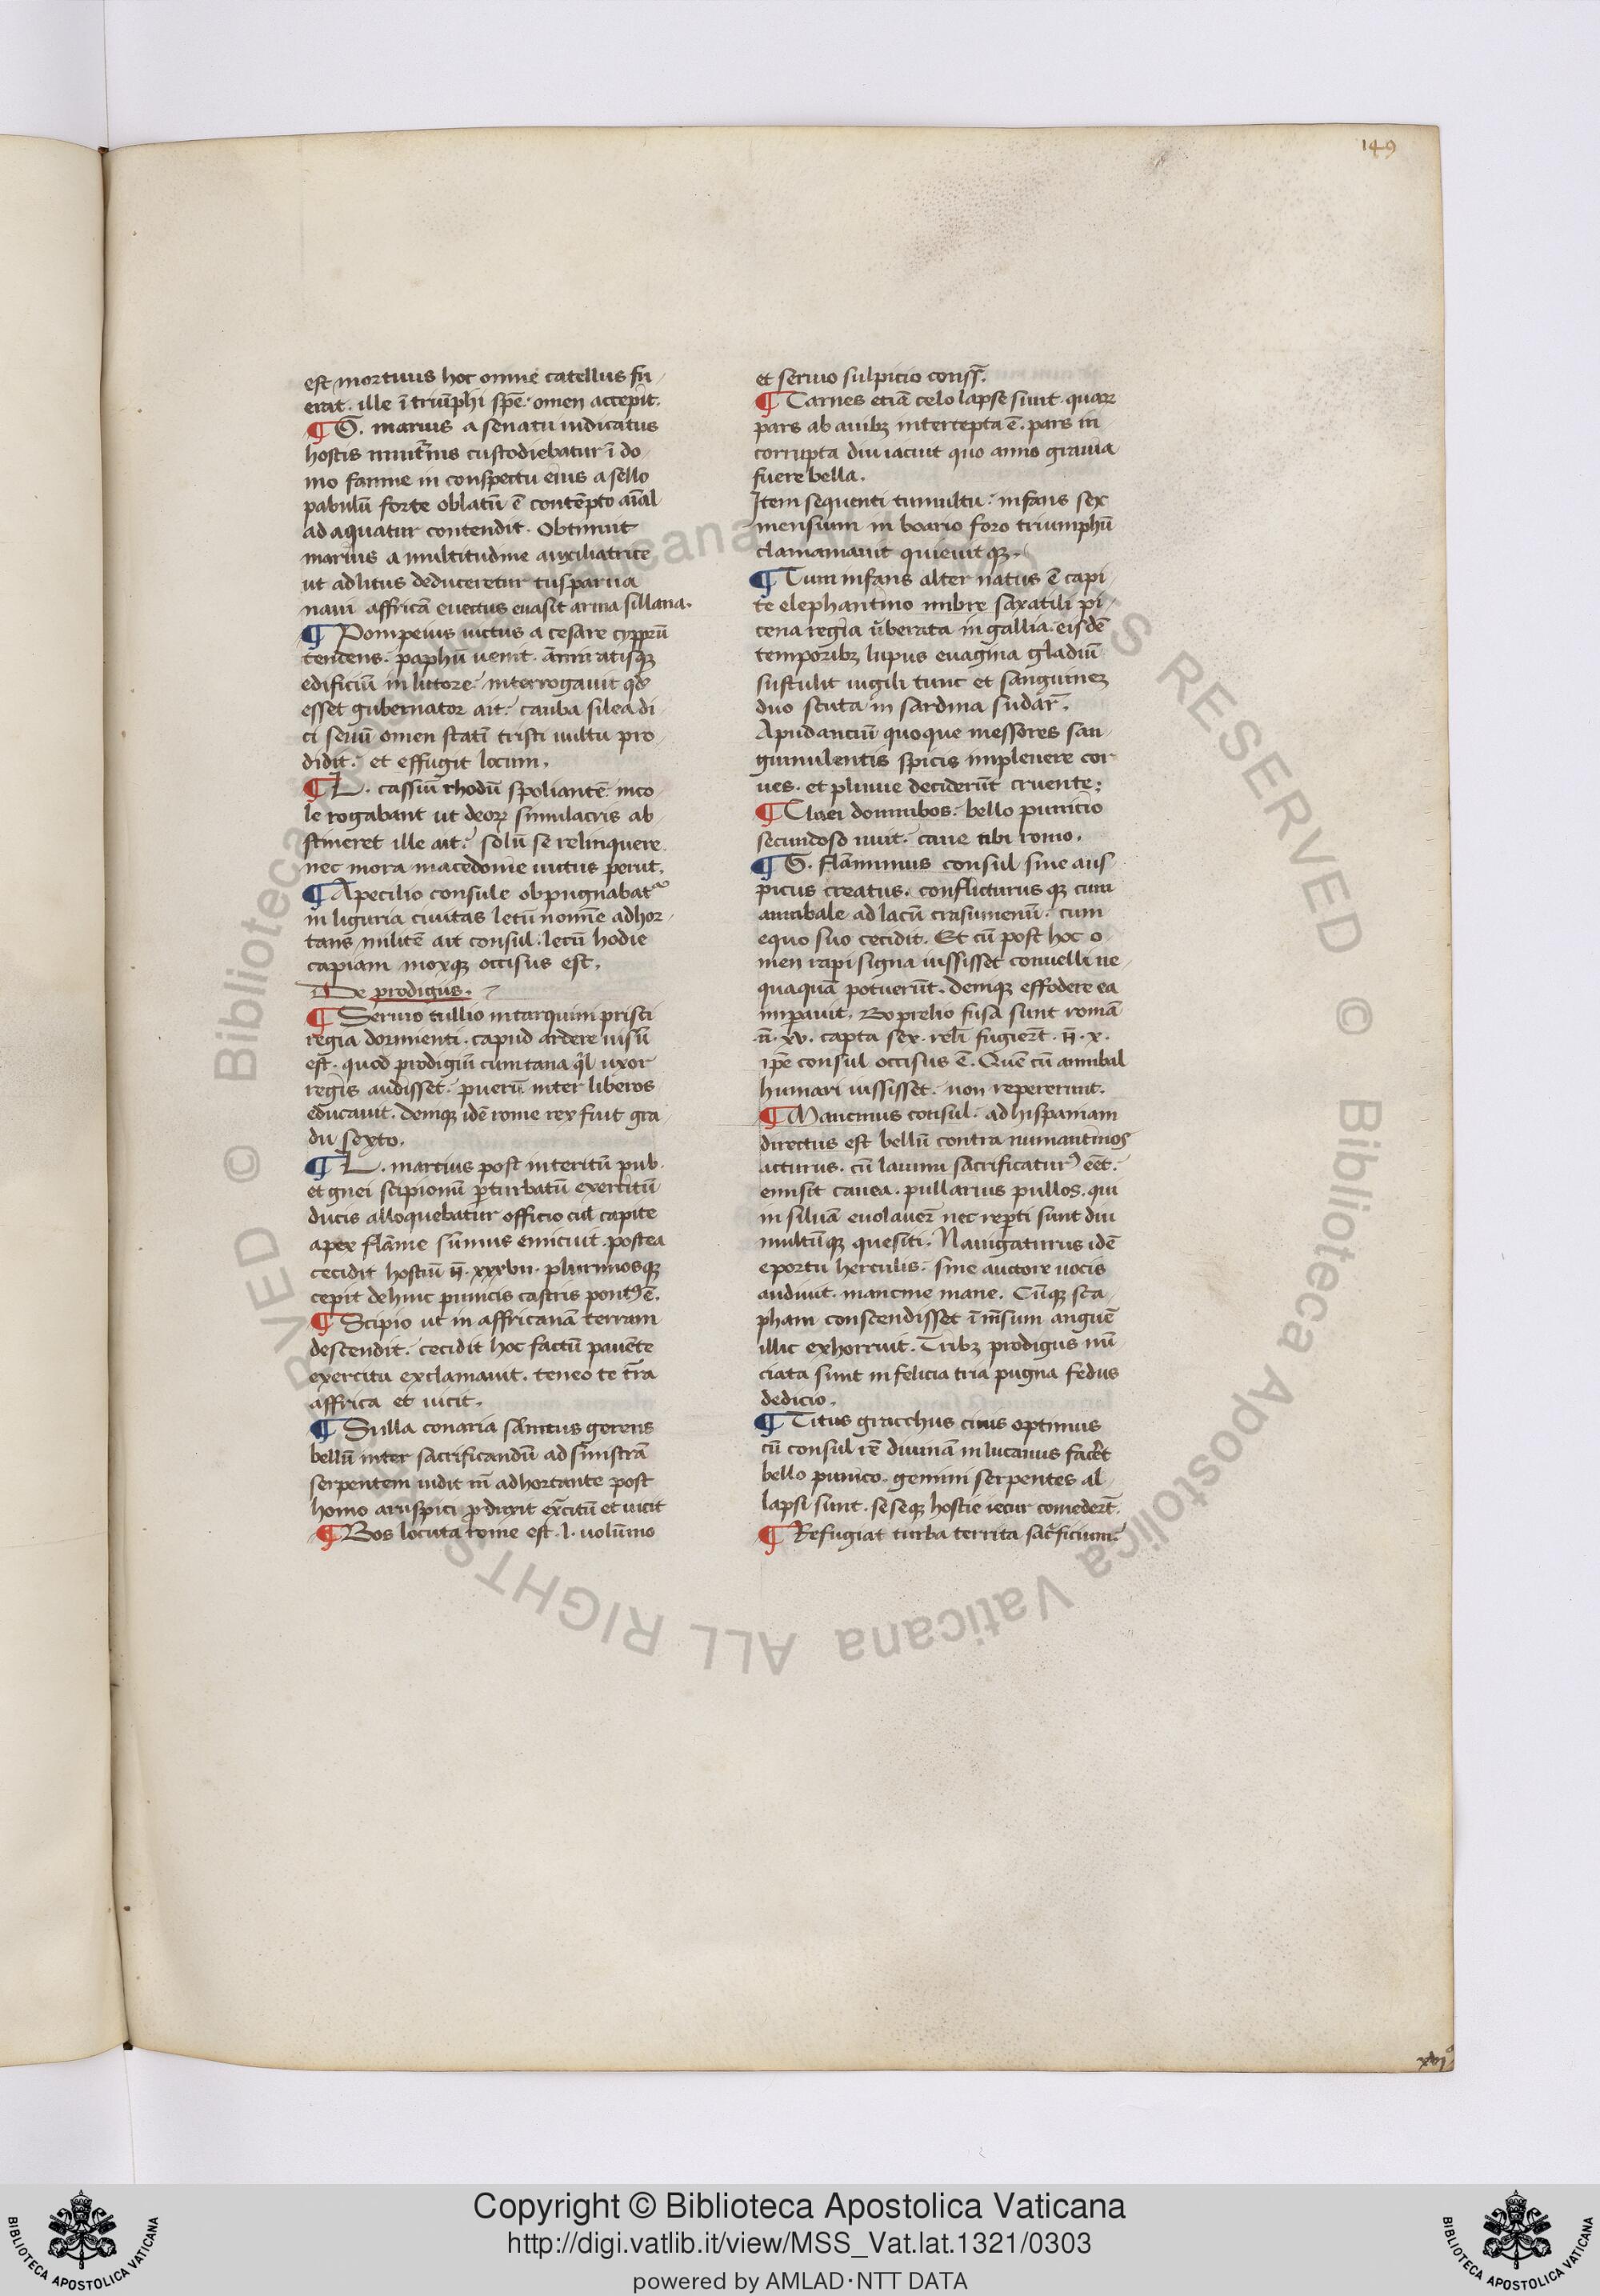 149
est mortuus hoc omine catellus fu
erat. ille ī triūphi spē omen accepit.
¶ G. marius a senatu iudicatus
hostis custodiebatur ī do
mo fanme in conspectu eius asello
pabulū forte oblatū ē contēpto aīal
ad aquatur contendit. Obtinuit
marius a multitudine auxiliatrice
ut ad litus deduceretur tus parua
naui affricā euectus euasit arma sillana.
¶ Pompeius uictus a cesare cyprū
tendens. paphū uenit. atisqꝫ
edificiū in littore. interrogauit qd
esset gubernator ait. catiba silea di
ci seuū omen statī tristi uultu pro
didit. et effugit locum.
¶ L. cassiū rhodū spoliantē inco
le rogabant ut deoꝝ simulacris ab
stineret ille ait. solū se relinquere
nec mora macedonie uictus periit.
¶ A pecilio consule obpugnabat᷑
in liguria ciuitas letū nomīe adhor
tans militē ait consul. letū hodie
capiam moxqꝫ occisus est.
De prodigiis.
¶ Seruio tullio in tarquini prisci
regia dormienti. capud ardere uisū
est. quod prodigiū cum tana uxor
regis audisset. puerū inter liberos
educauit. demqꝫ idē rome rex fuit gra
du sexto.
¶ L. martius post interitū pub.
et gnei scipionū pturbatū exercitū
ducis alloquebatur officio cuī capite
apex flāme sūmus emicuit. postea
cecidit hostiū n̄. xxxvii. plurimosqꝫ
cepit dehinc punicis castris
¶ Scipio ut in affricanā terram
descendit. cecidit hoc factū pauente
exercitu exclamauit. teneo te tr̄a
affrica et uicit.
¶ Silla conaria gerens
bellū inter sacrificandū ad sinistrā
serpentem uidit adhortante post
homo aruspici pdixit exc̄itū et uicit
¶ Bos locuta rome est. l. uolūnio
et seruio sulpicio conss̄.
¶ Carnes etiā celo lapse sunt. quaꝝ
pars ab auibꝫ intercepta ē. pars in
corrupta diu iacuit quo anno grauia
fuere bella.
Item sequenti tumultu. infans sex
mensium in boario foro triumphū
clamamauit quieuit qꝫ.
¶ Tum infans alter natus ē capi
te elephantino imbre saxatili pi
cena regia uberata in gallia. eisdē
temporibꝫ lupus euagina gladiū
sustulit uigili tunc et sanguineꝫ
duo scuta in sardinia sudar̄.
Apud anciū quoque messores san
guinulentis spicis impleuere cor
ues. et pluuie deciderūt cruente.
¶ domnibos. bello punicio
secundoso caue tibi romo.
¶ G. flāminius consul sine aus
piciis creatus. conflicturus qꝫ cum
annibale ad lacū trasumenū. cum
equo suo cecidit. Et cū post hoc o
men rapi signa iussisset conuelli ne
quaquā potuerūt. demqꝫ effodere ea
imp̄auit. Eo prelio fusa sunt romā
n̄. xv. capta sex. rel̄i fugierūt. n̄. x.
ip̄e consul occisus ē. Quē cū annibal
humari iussisset. non repererunt.
¶ Mancinus consul. ad hispaniam
directus est bellū contra numantinos
acturus. cū lauinii sacrificatur᷒ eēt.
emisit cauea. pullarius pullos. qui
in siluā euolauer̄ nec rep̄ti sunt diu
multūqꝫ quesiti. Nauigaturus idē
e portu herculis. sine auctore uocis
audiuit. mancine mane. Cūqꝫ sca
pham conscendisset anguē
illic exhorruit. Tribꝫ prodigiis nū
ciata sunt infelicia tria pugna fedus
dedicio.
¶ Titus gracchus ciuis optimus
cū consul rē diuinā in lucanus facēt
bello punico. gemini serpentes al
lapsi sunt. seseqꝫ hostie iecur comeder̄t.
¶ Refugiat turba territa sac̄ficium.
© Biblioteca Apostolica Vaticana ALL RIGHTS RESERVED © Biblioteca Apostolica Vaticana ALL RIGHTS RESERVED
Copyright © Biblioteca Apostolica Vaticana
http://digi.vatlib.it/view/MSS_Vat.lat.1321/0303
powered by AMLAD·NTT DATA
BIBLIOTECA APOSTOLICA VATICANA
BIBLIOTECA APOSTOLICA VATICANA